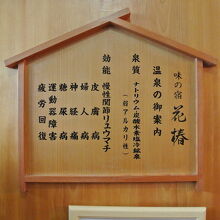 味の宿 花椿
温泉の御案内
泉質 ナトリウム炭酸水素塩冷鉱泉
(弱アルカリ性)
効能 慢性関節リュウマチ
皮膚病
婦人病
神経痛
糖尿病
運動器障害
疲労回復